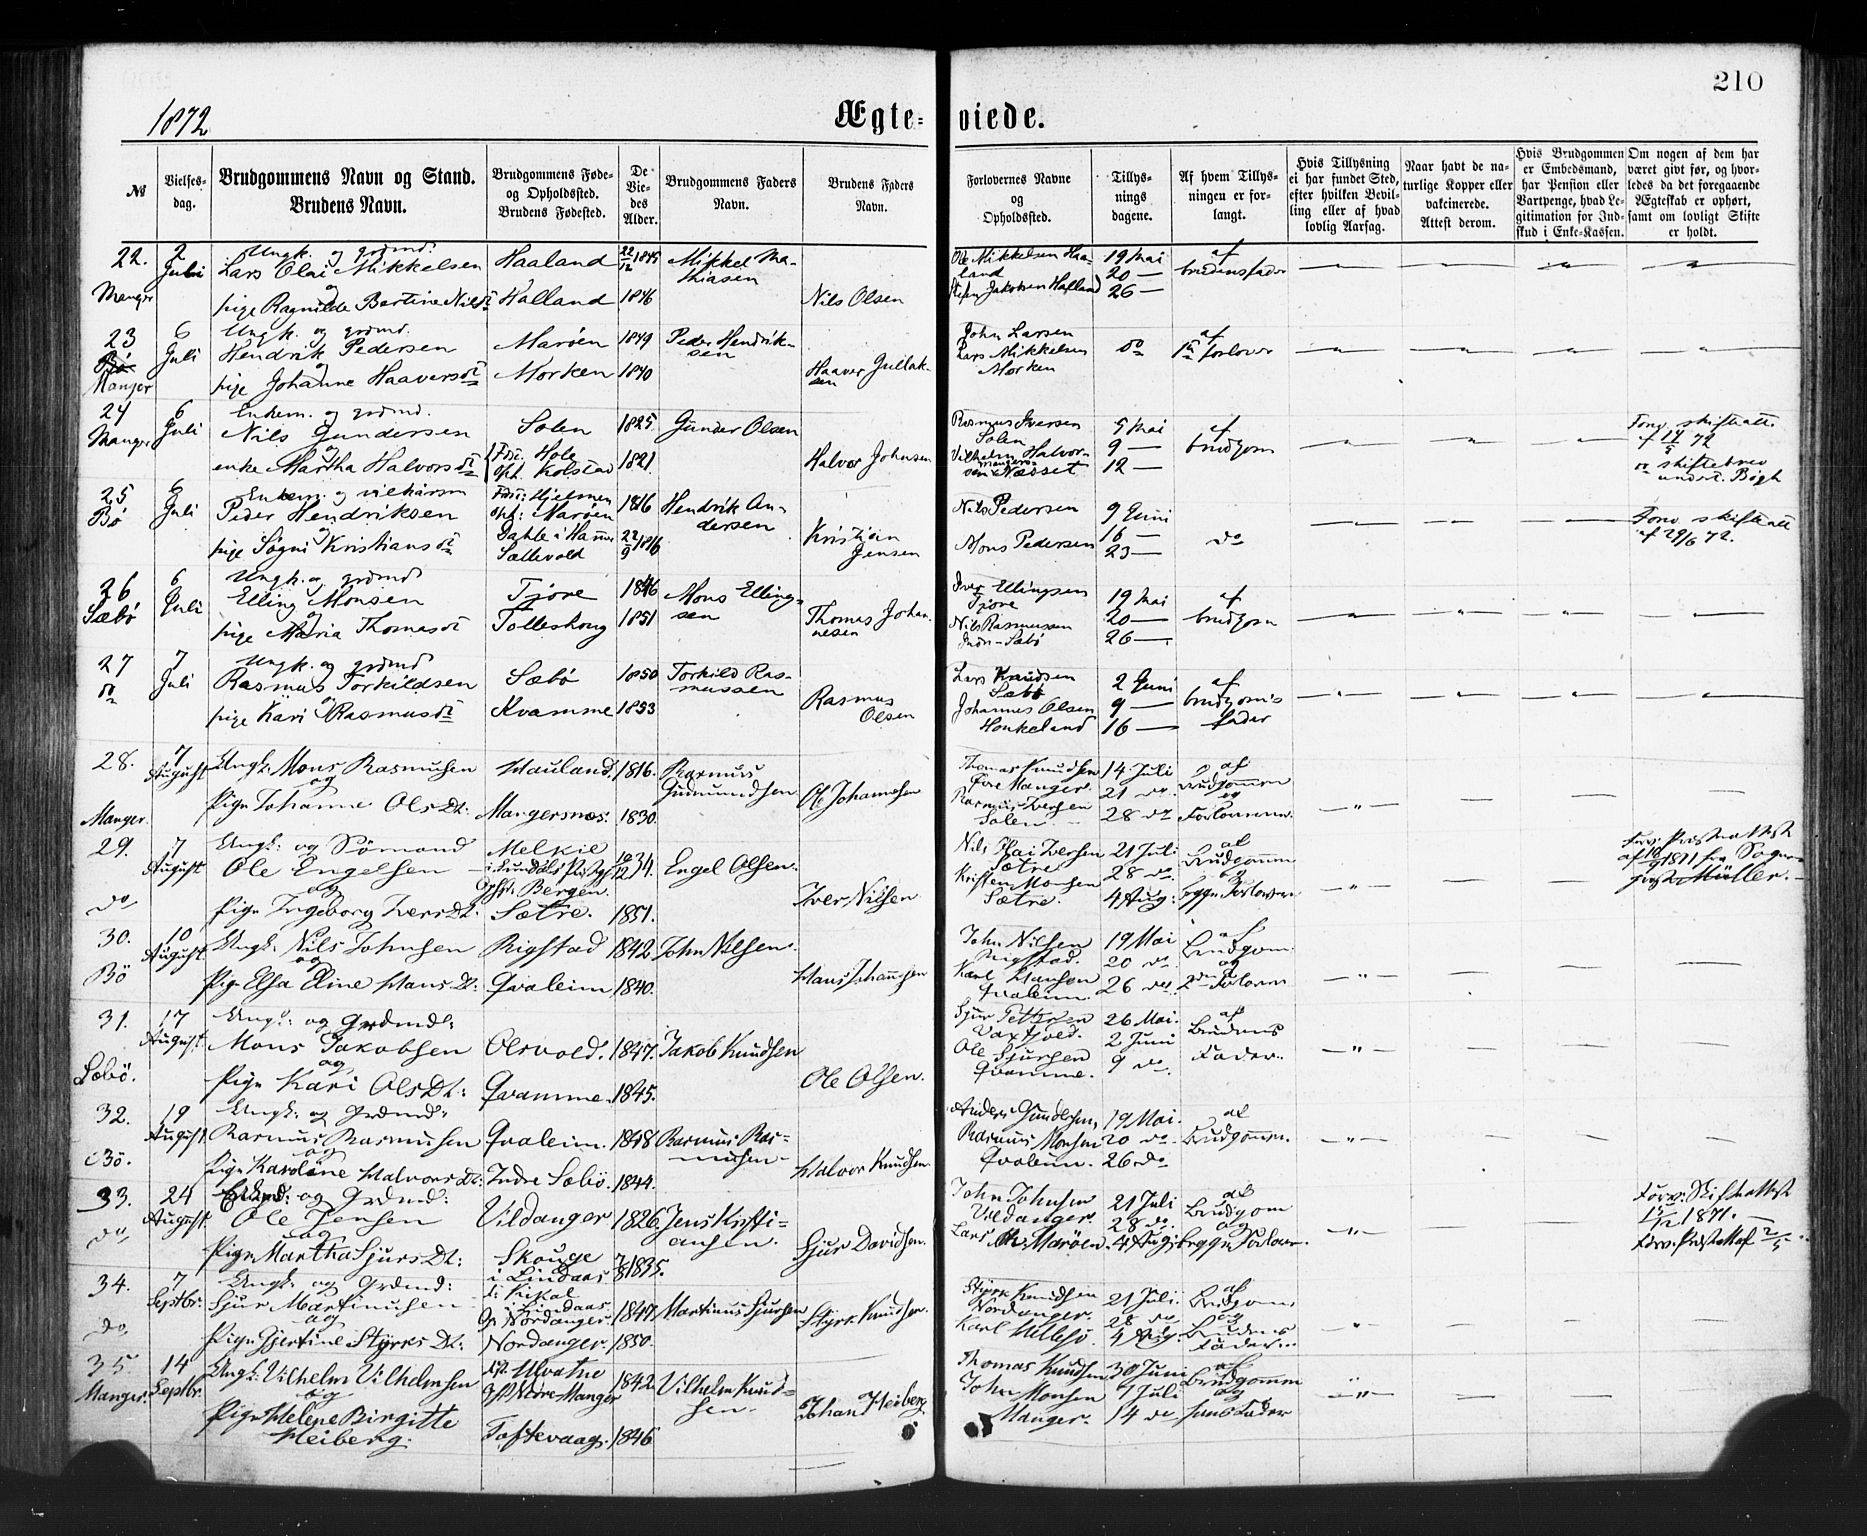 210
1872
Ægte-viede.
№
Vielses-dag.
Brudgommens Navn og Stand.
Brudens Navn.
Brudgommens Føde-
og Opholdssted.
Brudens Fødested.
De
Vie-
des
Alder.
Brudgommens Faders
Navn.
Brudens Faders
Navn.
Forlovernes Navne
og
Opholdssted.
Tillys-
nings
dagene.
Af hvem Tillys-
ningen er for-
langt.
Hvis Tillysning
ei har fundet Sted,
efter hvilken Bevil-
ling eller af hvad
lovlig Aarsag.
Naar havt de na-
turlige Kopper eller
vakcinerede.
Attest derom.
Hvis Brudgommen
er Embedsmand,
har Pension eller
Vartpenge, hvad Le-
gitimation for Ind-
skud i Enke-Kassen.
Om nogen af dem har
været givt før, og hvor-
ledes da det foregaaende
Ægteskab er ophørt,
samt om lovligt Skifte
er holdt.
22. Manger
2 Juli
Ungk. og grdmd.
Lars Olai Mikkelsen
og
pige Ragnilde Bertine Nilsdt
Haaland
Halland
22/12 1845
1846
Mikkel Ma-
thiasen
Nils Olsen
Ole Mikkelsen Haa-
land
Stefen Jakobsen Hafland
19 Mai
20 —
26 —
af
brudens fader
23 Manger
6 Juli
Ungk. og grdmd.
Hendrik Pedersen
og
pige Johanne Haaversdt
Marøen
Morken
1849
1840
Peder Hendrik-
sen
Haaver Gullak-
sen
John Larsen
Lars Mikkelsen
Morken
do
af
1ste forlover
24 Manger
6 Juli
Enkem. og grdmd.
Nils Gundersen
og
enke Martha Halvorsdt
Solen
Hole
Opt. Kolstad
1825
1821
Gunder Olsen
Halvor Johnsen
Rasmus Iversen
Solen
Vilhelm Halvor-
sen Mangersnæsset
5 Mai
9 —
12 —
af
brudgom
Forev. skifteatt.
skiftebrev
25 Bø
6 Juli
Enkem. og vilkårsm
Peder Hendriksen
og
pige Søgni Kristiansdt
Fdt: Hjelmen
opt: Marøen
Dahle i Hammer
Sellevold
1816
22/9 1816
Hendrik An-
dersen
Kristian
Jensen
Nils Pedersen
Mons Pedersen
9 Juni
16 —
23 —
do
Forev. skifteatt
af 29/6 72.
26 Sæbø
6 Juli
Ungk. og grdmd
Elling Monsen
og
pige Maria Thomasdt
Tjore
Tolleskong
1846
1851
Mons Elling-
sen
Thomas Johan-
nesen
Iver Ellingsen
Tjore
Nils Rasmussen
Indr-Sæbø
19 Mai
20 —
26 —
af
brudgom
27 do
7 Juli
Ungk. og grdmd
Rasmus Torkildsen
og
pige Kari Rasmusdt
Sæbø
Kvamme
1850
1853
Torkild Ras-
mussen
Rasmus
Olsen
Lars Knudsen
Sæbø
Johannes Olsen
Honkeland
2 Juni
9 —
16 —
af
brudgoms
fader
28. Manger.
7 August
Ungk: Mons Rasmusen
og
Pige Johanne Ols Dt:
Hauland.
Mangersnæs:
1816.
1830.
Rasmus
Gudmundsen
Ole Johannesen
Thomas Knudsen
Øvre Manger.
Rasmus Iversen
Solen
14 Juli
21 do
28 do
af
Brudgommen
og
Forloveren.
29. do
7 August
Ungk: og Sømand
Ole Engelsen
og
Pige Ingeborg Ivers Dt.
Melkie
Opst. Bergen.
Sætre.
10/12 34.
1851.
Engel Olsen.
Iver Nilsen
Nils Olai Iversen
Sætre
Kristen Monsen
Sætre.
21 Juli
28 do
4 Aug:
af
Brudgomm
og
begge Forlovere
Forev. Præsteattest
af 10/9 1871 fra Sogne-
præst Müller.
30. Bö
10 August
Ungk: Nils Johnsen
og
Pige Elsa Eline Hans Dt:
Rigstad
Qvaleim
1842.
1840.
John Nilsen.
Hans Johannesen
John Nilsen
Rigstad.
Karl Hansen
Qvaleim.
19 Mai
20 do
26 do
af
Brudgom.
og
2den Forlover
31. Sæbö.
17 August
Ungk: og Grdmd:
Mons Jakobsen
og
Pige Kari Ols Dt:
Olsvold.
Qvamme.
1847.
1845.
Jakob Knudsen
Ole Olsen.
Sjur Pettersen
Vaxtvold.
Ole Sjursen
Qvamme.
26 Mai.
2 Juni
9 do.
af
Brudens
Fader.
32. Bö.
19 August
Ungk: og Grdmd:
Rasmus Rasmusen
og
Pige Karoline Halvors Dt:
Qvaleim.
Indre Sæbö.
1848.
1844.
Rasmus Ras-
musen
Halvor Knudsen.
Anders Gundersen,
Rasmus Monsen
Qvaleim.
19 Mai.
20 do
26 do
af
Brudgommen.
33. do
24 August.
Enkmd: og Grdmd:
Ole Jensen
og
Pige Martha Sjurs Dt:
Vildanger
Skouge
i Lindaas
1826.
1835.
Jens Kristi-
ansen.
Sjur Davidsen.
John Johnsen
Vildanger.
Lars Marøen.
21 Juli
28 do.
4 Aug:
af
Brudgom
og
begge Forlover.
Forev. Skifteattest
1871.
Forev. Præsteatt af 2/5
34. do
7 Septbr:
Ungk: og Grdmd:
Sjur Martinusen
og
Pige Gjertine Styrks Dt:
i Lindaas.
Op. Nordanger.
Nordanger.
1847.
1850.
Martinus Sjursen
Styrk Knudsen.
Styrk Knudsen
Nordanger.
Karl Hillesø.
21 Juli.
28 do
4 Aug.
af
Brudgom
og
Brudens
Fader.
35 Manger.
14 Septbr.
Ungk: Vilhelm Vilhelmsen
og
Pige Helene Birgitte
Heiberg.
Ulvatne
Opst Nedre Manger
Toftevaag.
1842.
1846
Vilhelm Knud-
sen.
Johan Heiberg
Thomas Knudsen
John Monsen
Manger.
30 Juni
7 Juli
14 do
af
Brudgomm
og
hans Fader